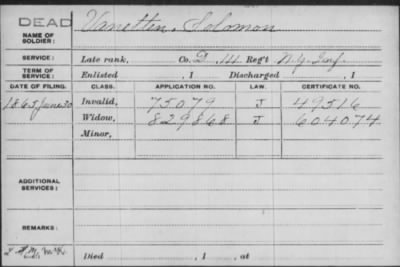 DEAD
NAME OF SOLDIER: Vanetten, Solomon
SERVICE: Late rank, Co. D, 141 Reg't N.Y. Inf.
TERM OF SERVICE: Enlisted , 1 Discharged , 1
DATE OF FILING. CLASS. APPLICATION NO. LAW. CERTIFICATE NO.
1865 June 30 Invalid, 75079 J 49516
Widow, 829868 J 604074
Minor,
ADDITIONAL SERVICES:
REMARKS:
Died , 1 , at